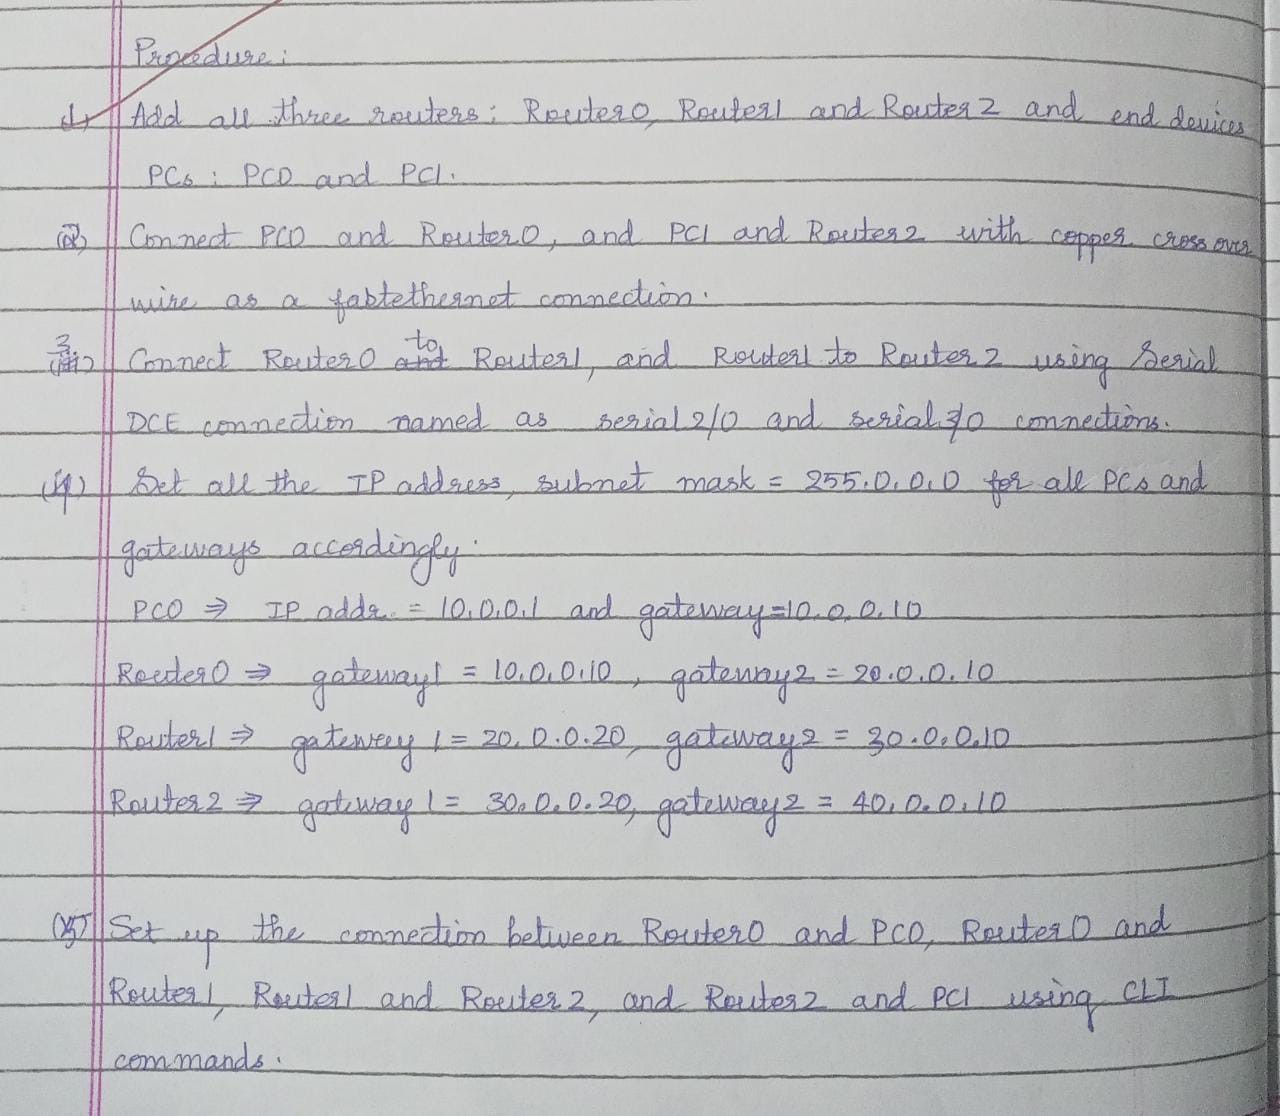 Procedure:
(1) Add all three routers: Router0, Router1 and Router2 and end devices
PCs: PC0 and PC1.
(2) Connect PC0 and Router0, and PC1 and Router2 with copper cross over
wire as a fastethernet connection.
(3) Connect Router0 to Router1, and Router1 to Router2 using Serial
DCE connection named as serial 2/0 and serial 3/0 connections.
(4) Set all the IP address, subnet mask = 255.0.0.0 for all PCs and
gateways accordingly.
PC0 ⇒ IP addr. = 10.0.0.1 and gateway=10.0.0.10
Router0 ⇒ gateway1 = 10.0.0.10, gateway2 = 20.0.0.10
Router1 ⇒ gateway 1 = 20.0.0.20, gateway2 = 30.0.0.10
Router2 ⇒ gateway 1 = 30.0.0.20, gateway2 = 40.0.0.10
(5) Set up the connection between Router0 and PC0, Router0 and
Router1, Router1 and Router2, and Router2 and PC1 using CLI
commands.